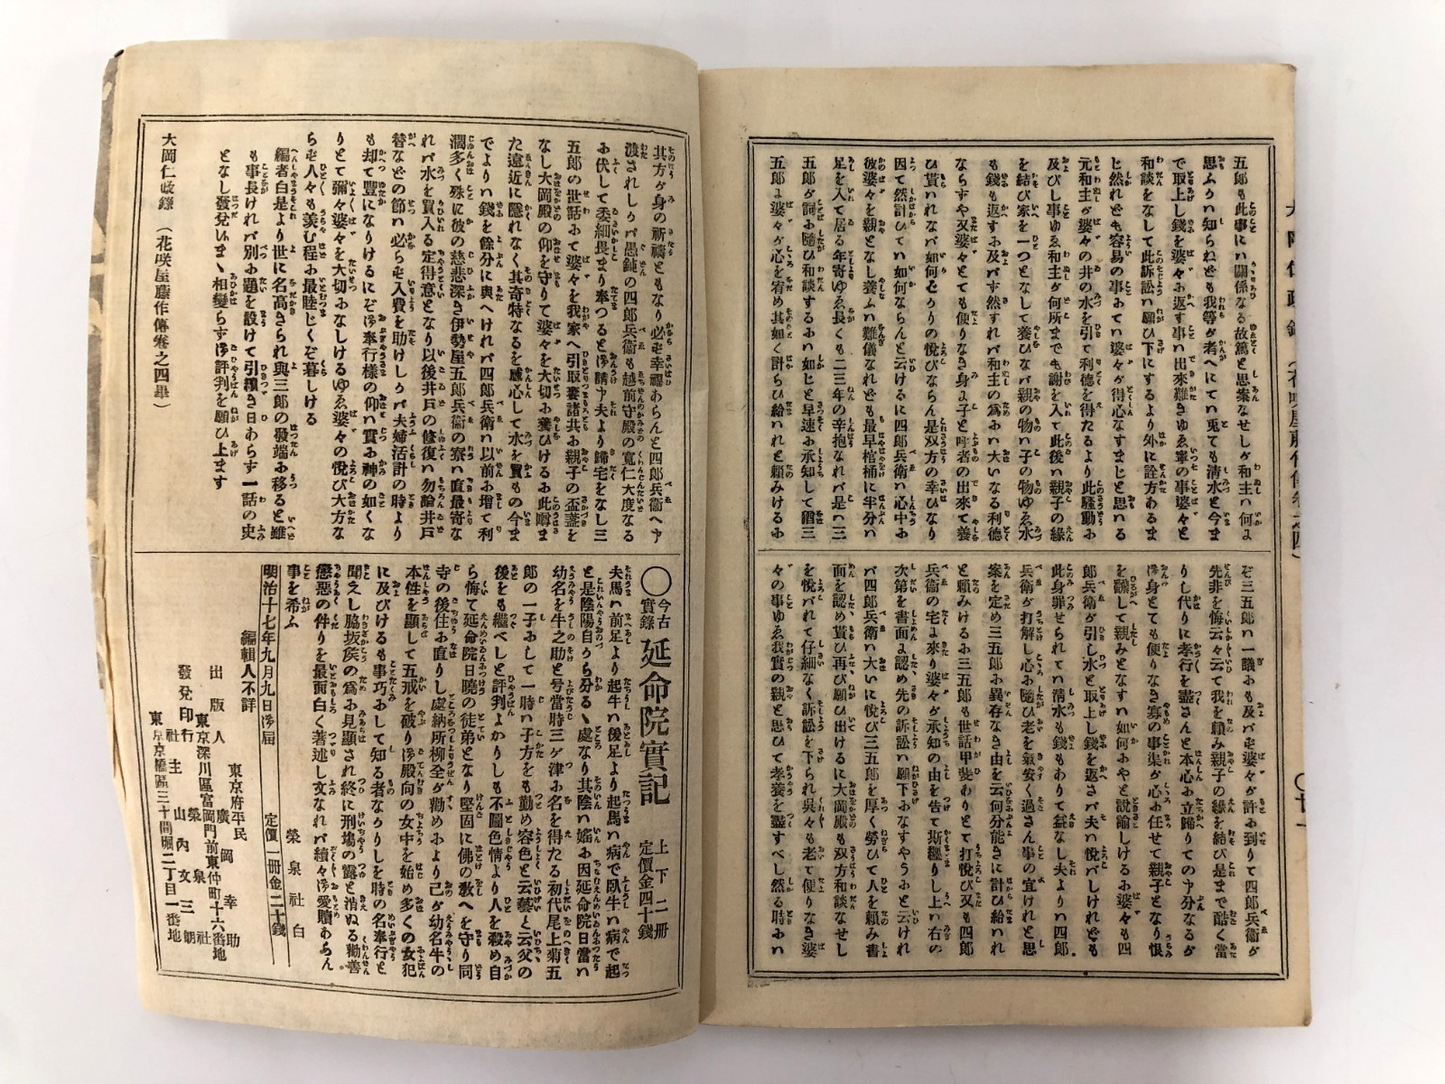 五郎も此事にハ關係なる故篤と思案なせしが和主ハ何よ
思ふか知らねども我等が考へにてハ兎ても清水と今ま
で取上し錢を婆々お返す事ハ出來難きゆゑ寧の事婆々と
和談をなして此訴訟ハ願ひ下にするより外に詮方あるま
じ然れども容易の事おてハ婆々が得心なすまじと思ハる
元和主が婆々の井の水を引て利德を得たるより此騷動お
及びし事ゆゑ和主が何所までも謝を入て此後ハ親子の緣
を結び家を一つとなして養ひなバ親の物ハ子の物ゆゑ水
も錢も返すお及バず然すれバ和主の爲おハ大いなる利德
ならずや又婆々とても便りなき身よ子と呼者の出來て養
ひ貰ハれなバ如何をかりの悅びならん是双方の幸ひなり
因て然計ひてハ如何ならんと云けるに四郎兵衞ハ心中お
彼の婆々を親となし養ふハ難儀なれども最早棺桶に半分ハ
足を入て居る年寄ゆゑ長くも二三年の辛抱なれバ是ハ三
五郎が詞お隨ひ和談するお如じと早速お承知して猶三
五郎よ婆々が心を宥め其如く計らひ給ハれと賴みけるお
ぞ三五郎ハ一議おも及バず婆々が許お到りて四郎兵衞が
先非を悔云々云て我を賴み親子の緣を結び是まで酷く當
りし代りに孝行を盡さんと本心お立歸りての事なるが
御身とても便りなき寡の事渠が心お任せて親子となり恨
を飜して親みとなすハ如何おやと說諭しけるお婆々も四
郎兵衞が引し水と取上し錢を返さバ夫ハ悅バしけれども
此身罪せられてハ清水も錢もありて益なし夫よりハ四郎
兵衞が打解し心お隨ひ老を氣安く過さん事の宜けれと思
案を定め三五郎お異存なき由を云何分能きに計ひ給ハれ
と賴みけるお三五郎も世話甲斐ありとて打悅び又も四郎
兵衞の宅よ來り婆々が承知の由を告て斯纏りし上ハ右の
次第を書面よ認め先の訴訟ハ願下おなすやうおと云けれ
バ四郎兵衞ハ大いに悅び三五郎を厚く勞ひて人を賴み書
面を認め貰ひ再び願ひ出けるに大岡殿も双方和談なせし
を悅バれて仔細なく訴訟を下られ吳々も老て便りなき婆
々の事ゆゑ我實の親と思ひて孝養を盡すべし然る時おハ
其方が身の祈禱ともなり必ず幸福あらんと四郎兵衞へ申
渡されしかバ愚鈍の四郎兵衞も越前守殿の寬仁大度なる
お伏して委細畏まり奉つると御請申夫より歸宅をなし三
五郎の世話おて婆々を我家へ引取妻諸共お親子の盃盞を
なし大岡殿の仰を守りて婆々を大切お養ひけるお此噂ま
た遠近に隱れなく其奇特なるを感心して水を買もの今ま
でよりハ錢を餘分に與へけれバ四郎兵衞ハ以前お增て利
潤多く殊に彼の慈悲深き伊勢屋五郎兵衞の寮ハ直最寄な
れバ水を買入る定得意となり以後井戶の修復ハ勿論井戶
替などの節ハ必らず入費を助けしかバ夫婦活計の時より
も却て豐になりけるにぞ御奉行樣の仰ハ實お神の如くな
りとて彌々婆々を大切おなしけるゆゑ婆々の悅び大方な
らず人々も羨む程お最睦じくぞ暮しける
編者白是より世に名高きられ與三郎の發端お移ると雖
も事長ければ別お題を設けて引續き日あらず一話の史
となし發兌いまゝ相變らず御評判を願ひ上ます
大岡仁政錄(花咲屋藤作傳卷之四畢)
○今古實錄 延命院實記 上下二冊 定價金四十錢
夫馬ハ前足より起牛ハ後足より起馬ハ病で臥牛ハ病で起
と是陰陽自から分るゝ處なり其陰ハ婬お因延命院日當ハ
幼名を牛之助と号當時三ヶ津お名を得たる初代尾上菊五
郎の一子おして一時ハ子方をも勤め容色と云藝と云父の
後をも繼べしと評判よかりしも不圖色情より人を殺め自
ら悔て延命院日曉の徒弟となり堅固に佛の敎へを守り同
寺の後住お直りし處納所柳全が勸めおより己が幼名牛の
本性を顯して五戒を破り御殿向の女中を始め多くの女犯
に及びけるも事巧おして知る者なかりしを時の名奉行と
聞えし脇坂侯の爲お見顯され終に刑塲の露と消ぬる勸善
懲惡の件りを最面白く著述し文なれバ續々御愛贖あらん
事を希ふ
榮泉社白
明治十七年九月九日御屆 定價一冊金二十錢
編輯人不詳
東京府平民
出版人 廣岡幸助
東京深川區富岡門前東仲町十六番地
發兌印行 榮泉社
社主 山內文三郎
東京京橋區三十間堀二丁目一番地